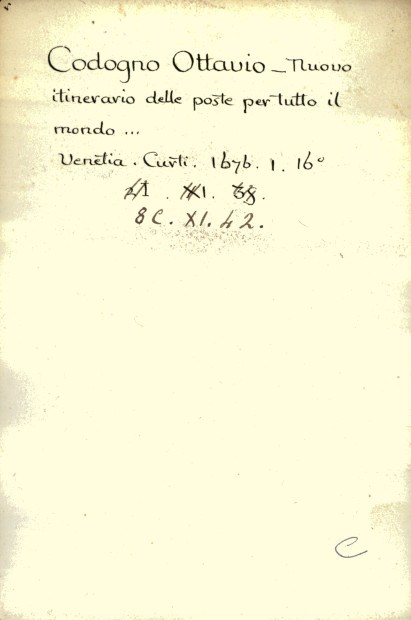 Codogno Ottavio – Nuovo
itinerario delle poste per tutto il
mondo ...
Venetia. Curti. 1676. 1. 16°
8 C. XI. 42.
C